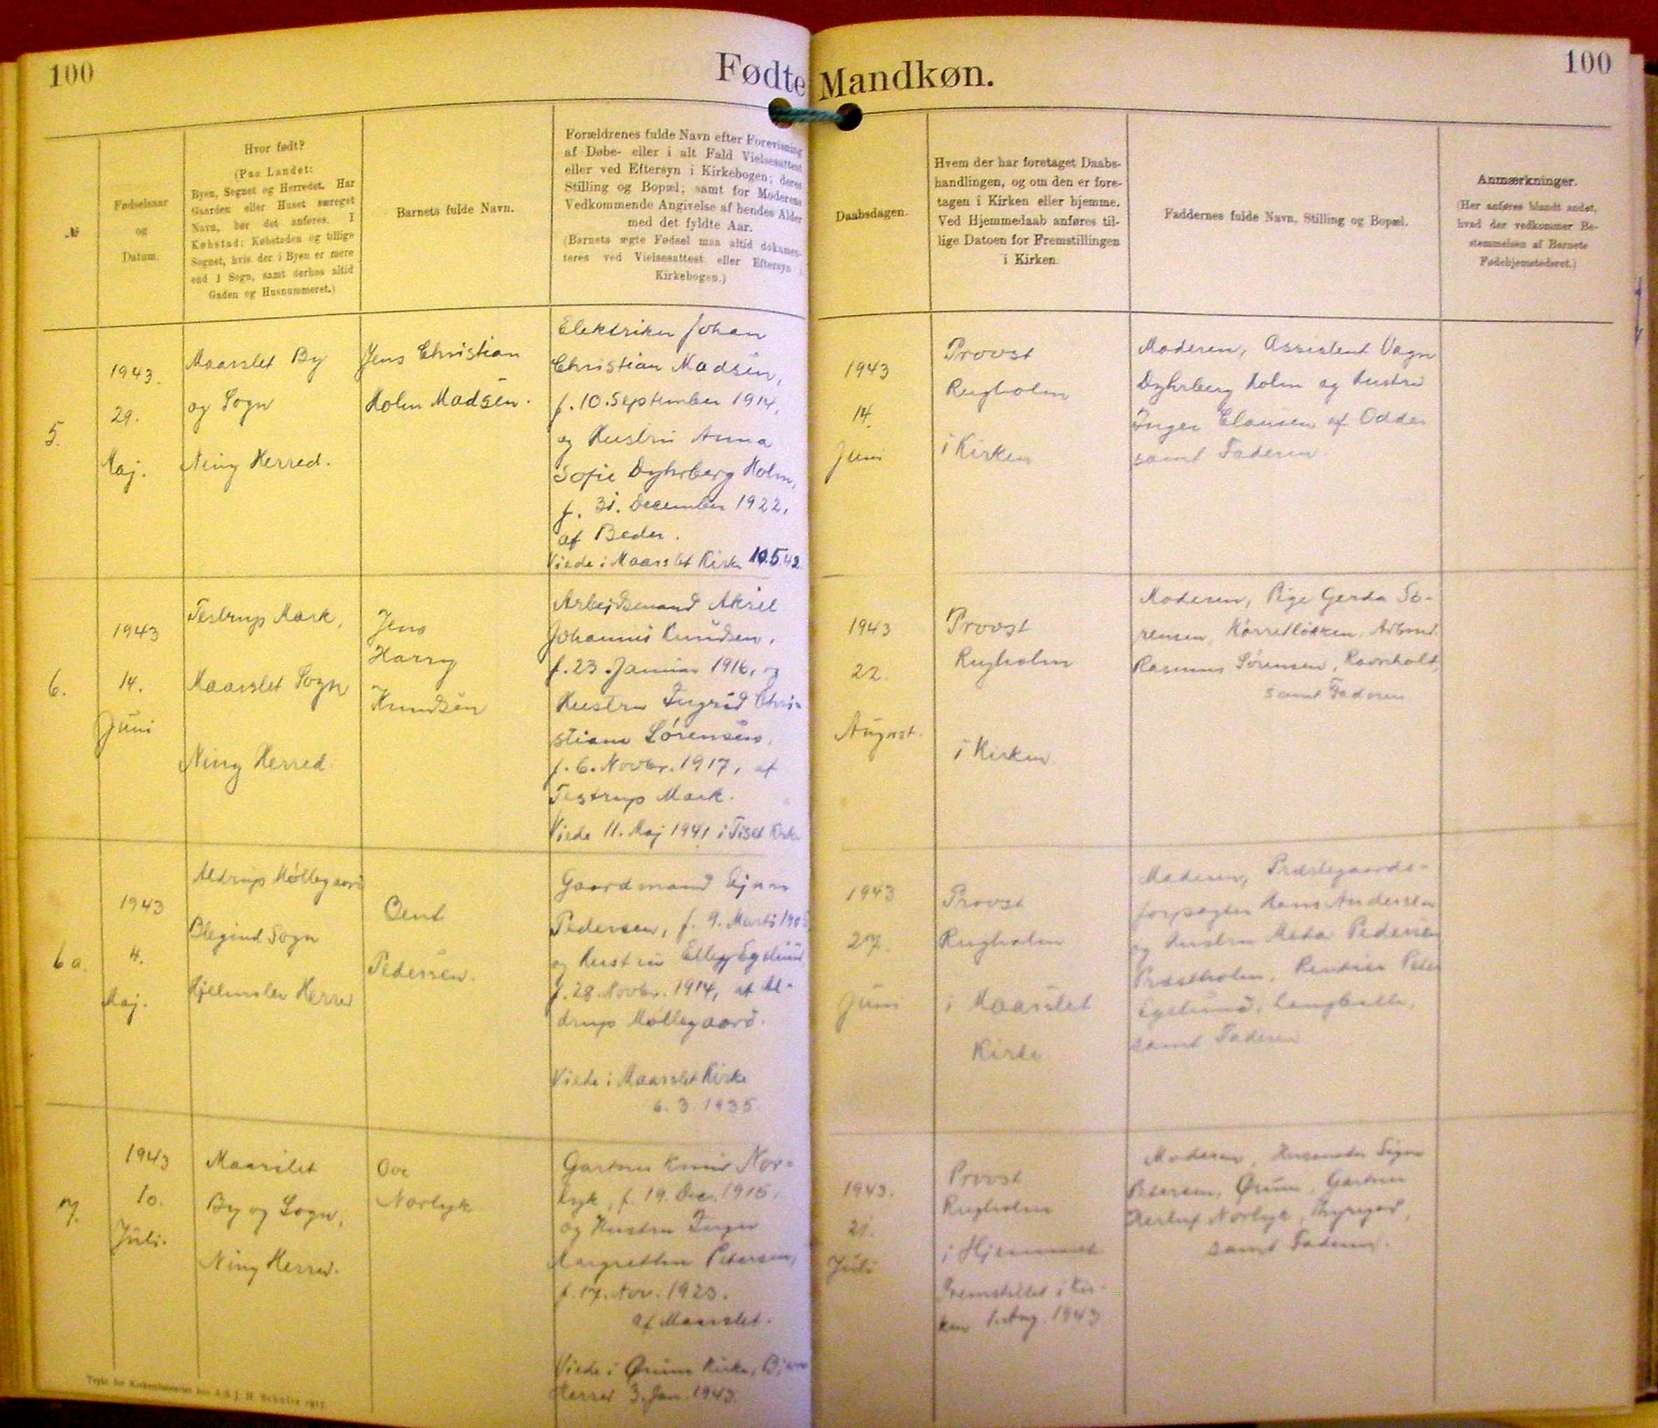 100
Fødte
Mandkøn.
100
№
Fødselsaar
og
Datum.
Hvor født?
(Paa Landet:
Byen, Sognet og Herredet. Har
Gaarden eller Huset særeget
Navn, bør det anføres. I
Købstad: Købstaden og tillige
Sognet, hvis der i Byen er mere
end 1 Sogn, samt derhos altid
Gaden og Husnummeret.)
Barnets fulde Navn.
Forældrenes fulde Navn efter Forevisning
af Døbe- eller i alt Fald Vielsesattest
eller ved Eftersyn i Kirkebogen; deres
Stilling og Bopæl; samt for Moderens
Vedkommende Angivelse af hendes Alder
med det fyldte Aar.
(Barnets ægte Fødsel maa altid dokumen-
teres ved Vielsesattest eller Eftersyn i
Kirkebogen.)
Daabsdagen.
Hvem der har foretaget Daabs-
handlingen, og om den er fore-
tagen i Kirken eller hjemme.
Ved Hjemmedaab anføres til-
lige Datoen for Fremstillingen
i Kirken.
Faddernes fulde Navn, Stilling og Bopæl.
Anmærkninger.
(Her anføres blandt andet,
hvad der vedkommer Be-
stemmelsen af Barnets
Fødehjemstederet.)
5.
1943.
29.
Maj.
Maarslet By
og Sogn
Ning Herred.
Jens Christian
Holm Madsen.
Elektriker Johan
Christian Madsen,
f. 10. September 1914,
og Hustru Anna
Sofie Dyhrberg Holm,
f. 31. December 1922,
af Beder.
Viede i Maarslet Kirke 10.5.42
1943
14.
Juni
Provst
Rugholm
i Kirken
Moderen, Assistent Vagn
Dyhrberg Holm og Hustru
Inger Clausen af Odder
samt Faderen.
6.
1943
14.
Juni
Testrup Mark,
Maarslet Sogn
Ning Herred
Jens
Harry
Knudsen
Arbejdsmand Aksel
Johannes Knudsen,
f. 23. Januar 1916, og
Hustru Ingrid Chri-
stiane Sørensen,
f. 6. Novbr. 1917, af
Testrup Mark.
Viede 11. Maj 1941 i Tiset Kirke
1943
22.
August.
Provst
Rugholm
i Kirken
Moderen, Pige Gerda Sø-
rensen, Arbmd.
Rasmus Sørensen, Ravnholt,
samt Faderen
6a.
1943
4.
Maj.
Aldrup Møllegaard
Blegind Sogn
Hjelmslev Herred
Bent
Pedersen.
Gaardmand Ejner
Pedersen, f. 9. Marts
og Hustru Elly Egelund
f. 28. Novbr. 1914, af Al-
drup Møllegaard.
Viede i Maarslet Kirke
6. 3. 1935.
1943
27.
Juni
Provst
Rugholm
i Maarslet
Kirke
Moderen, Præstegaards-
forpagter Hans Andersen
og Hustru Meta Pedersen
Præstholm, Rentier Peter
Egelund, Langballe,
samt Faderen
7.
1943
10.
Juli.
Maarslet
By og Sogn,
Ning Herred.
Ove
Norlyk
Gartner Knud Nor-
lyk, f. 19. Dec. 1915,
og Hustru Inger
Margrethe Petersen,
f. 17. Nov. 1923.
af Maarslet.
Viede i Ørum Kirke,
Herred 3. Jan. 1943.
1943.
21.
Juli
Provst
Rugholm
i Hjemmet
Fremstillet i Kir-
ken 1. Aug. 1943
Moderen, Signe
Petersen, Ørum, Gartner
Herluf Norlyk,
samt Faderen.